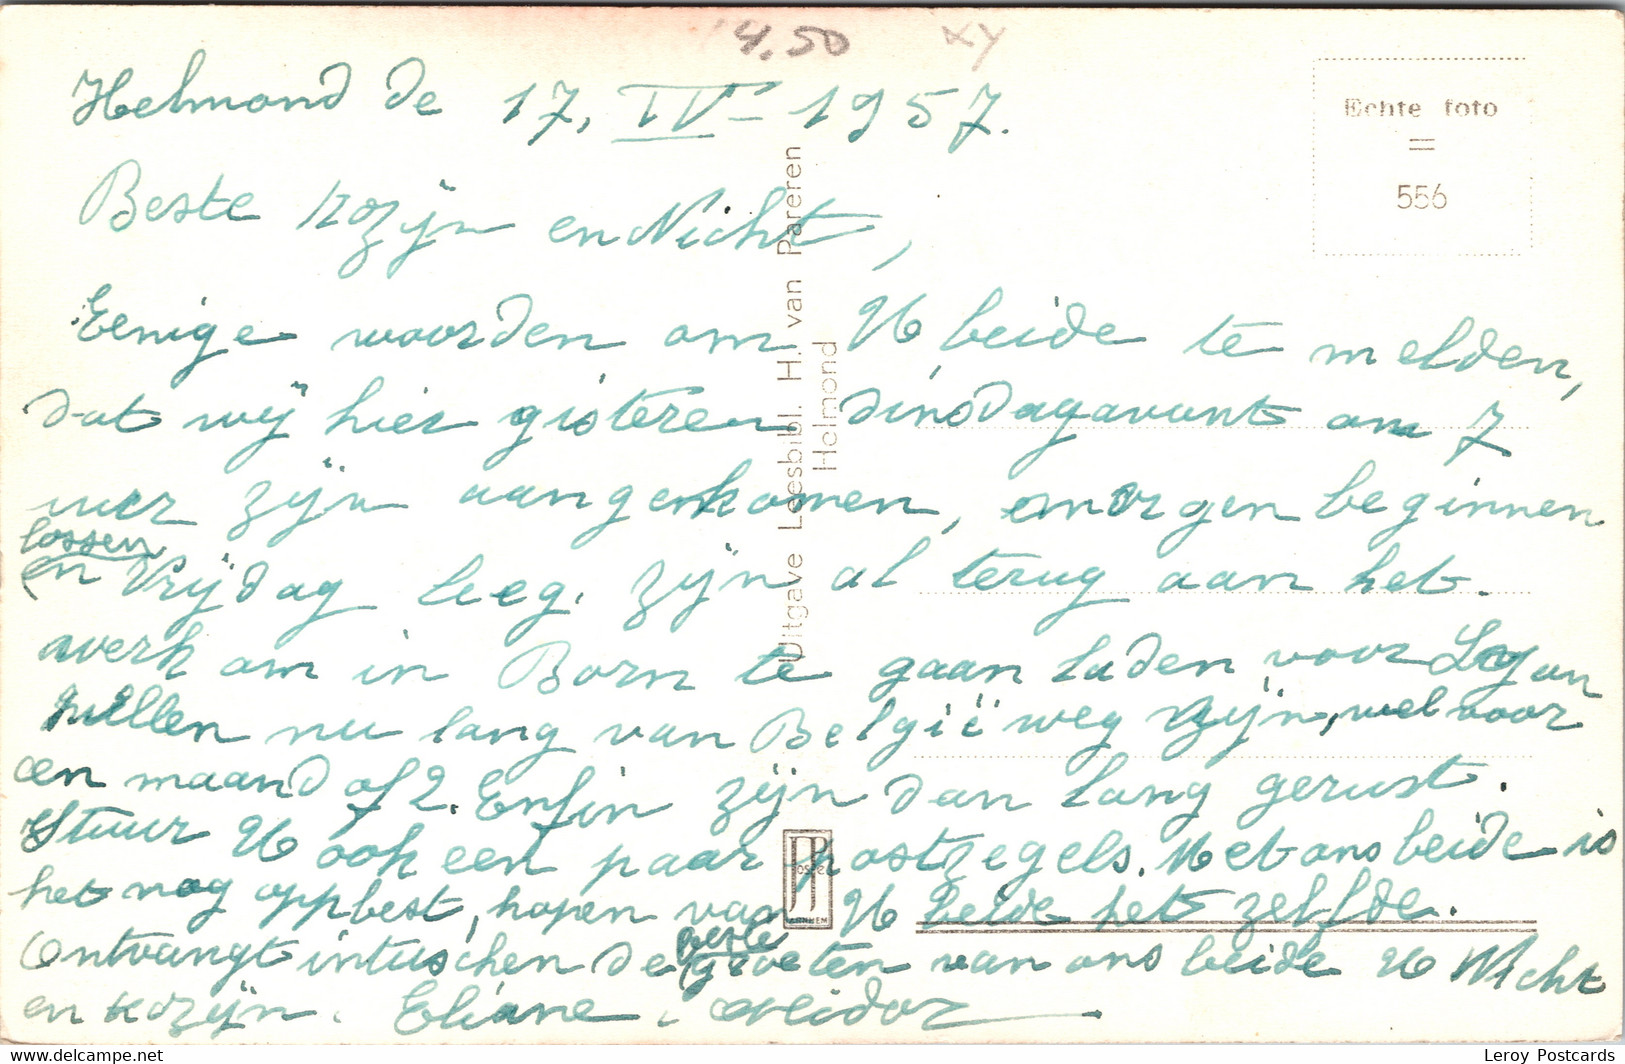 4.50 xy
Helmond de 17, IV - 1957.
Echte foto
=
556
Beste kozijn en Nicht,
Eenige woorden om U beide te melden,
dat wij hier gisteren dinsdagavont om 7
uur zijn aangekomen, morgen beginnen
lossen
en Vrijdag leeg. zijn al terug aan het
werk om in Born te gaan laden voor
zullen nu lang van België weg zijn, wel voor
een maand of 2. Enfin zijn dan lang gerust.
Stuur U ook een paar postzegels. Met ons beide is
het nog oppbest, hopen van U beide het zelfde.
Ontvangt intuschen de beste groeten van ons beide U Nicht
en kozijn. Eliane.
Uitgave Leesbibl. H. van Pareren
Helmond
JP
ARNHEM
Leroy Postcards